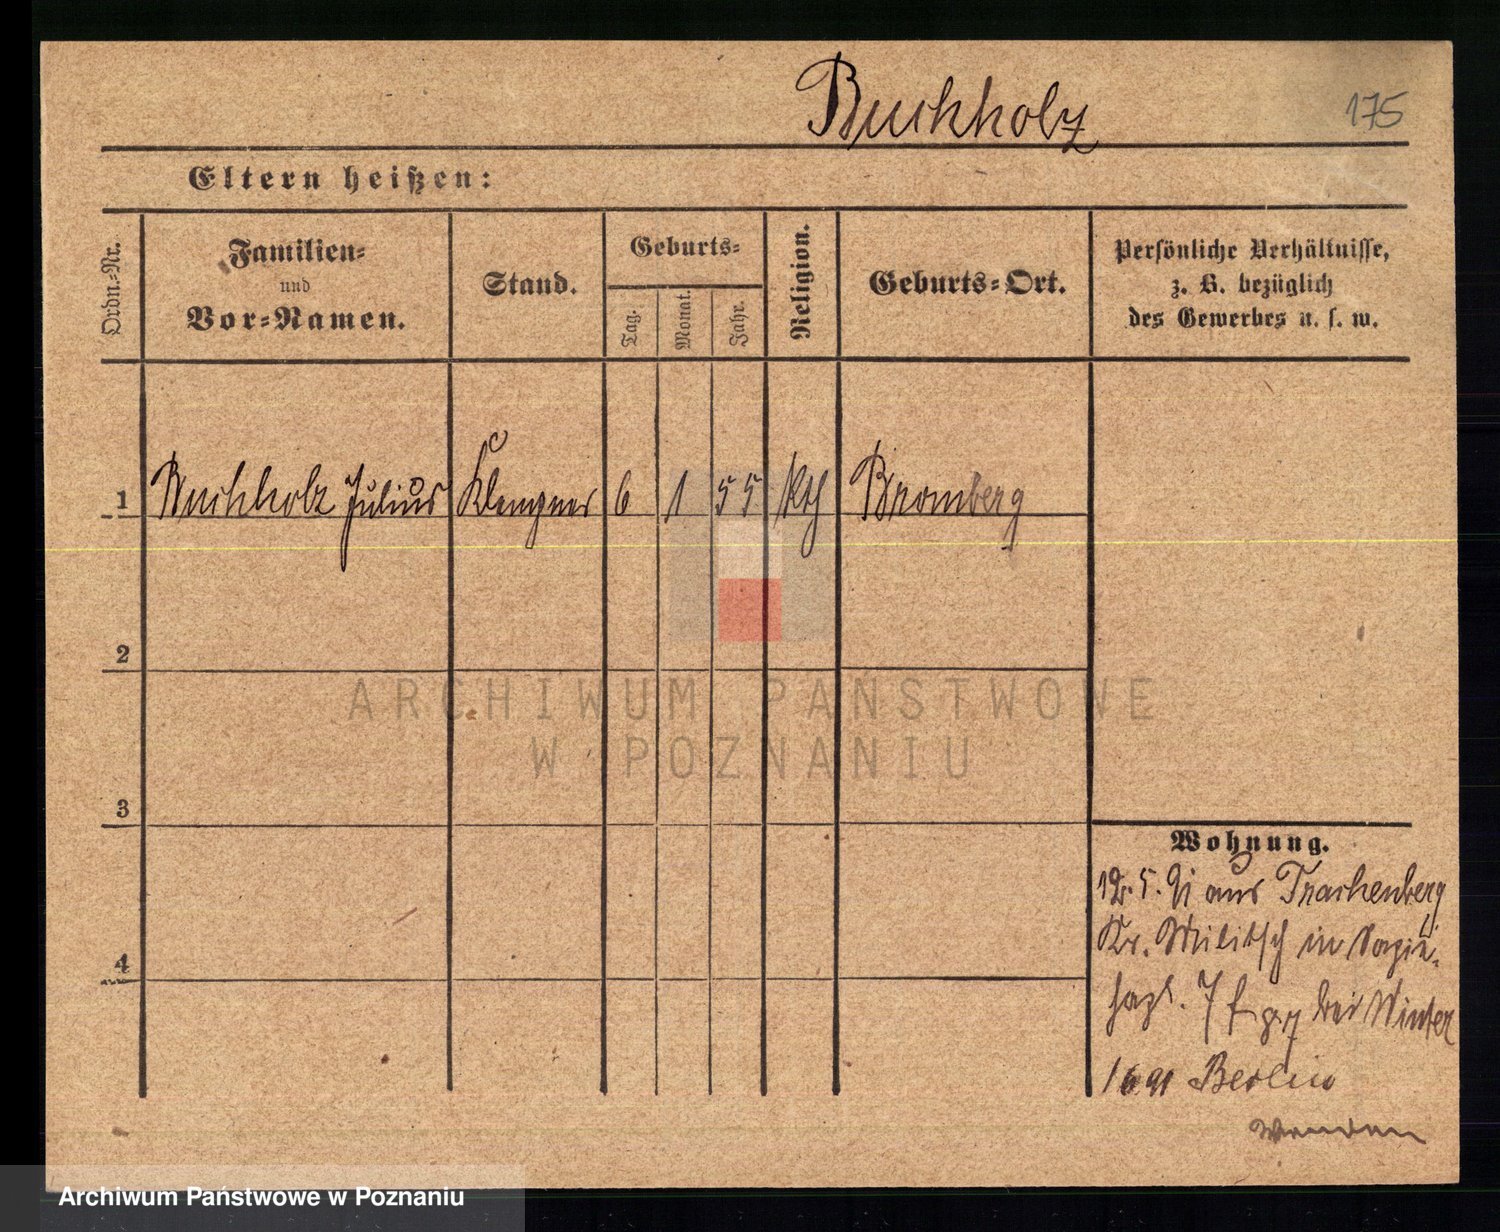 Buchholz
175
Eltern heißen:
Ordn.-Nr.
Familien-
und
Vor-Namen.
Stand.
Geburts-
Tag.
Monat.
Jahr.
Religion.
Geburts-Ort.
Persönliche Verhältnisse,
z. B. bezüglich
des Gewerbes u. s. w.
1 Buchholz Julius Klempner 6 1 55 kth Bromberg
2
3
4
Wohnung.
12. 5. 91 aus Trachenberg
Kr. Militsch in
7 bei Winter
1 6 91 Berlin
Wenden
ARCHIWUM PAŃSTWOWE
W POZNANIU
Archiwum Państwowe w Poznaniu